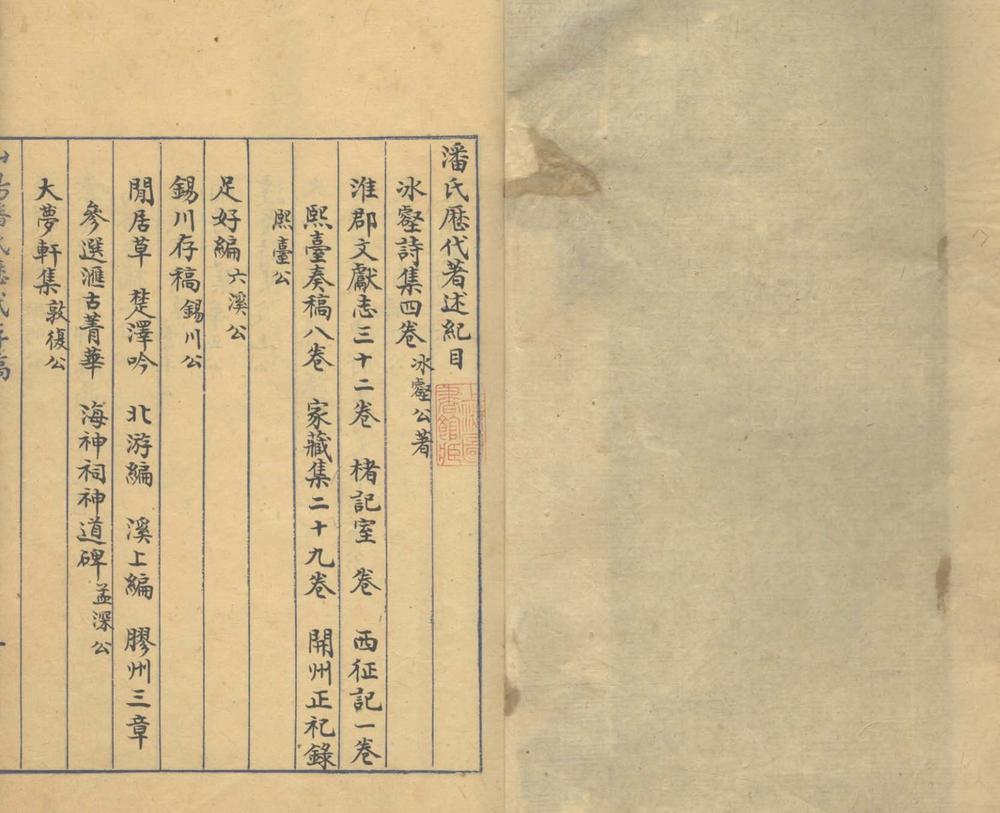 潘氏歷代著述紀目
冰壑詩集四卷 冰壑公著
淮郡文獻志三十二卷 楮記室 卷 西征記一卷
熙臺奏稿八卷 家藏集二十九卷 開州正祀錄
熙臺公
足好編 六溪公
錫川存稿 錫川公
閒居草 楚澤吟 北游編 溪上編 膠州三章
參選滙古菁華 海神祠神道碑 孟深公
大夢軒集 敦復公